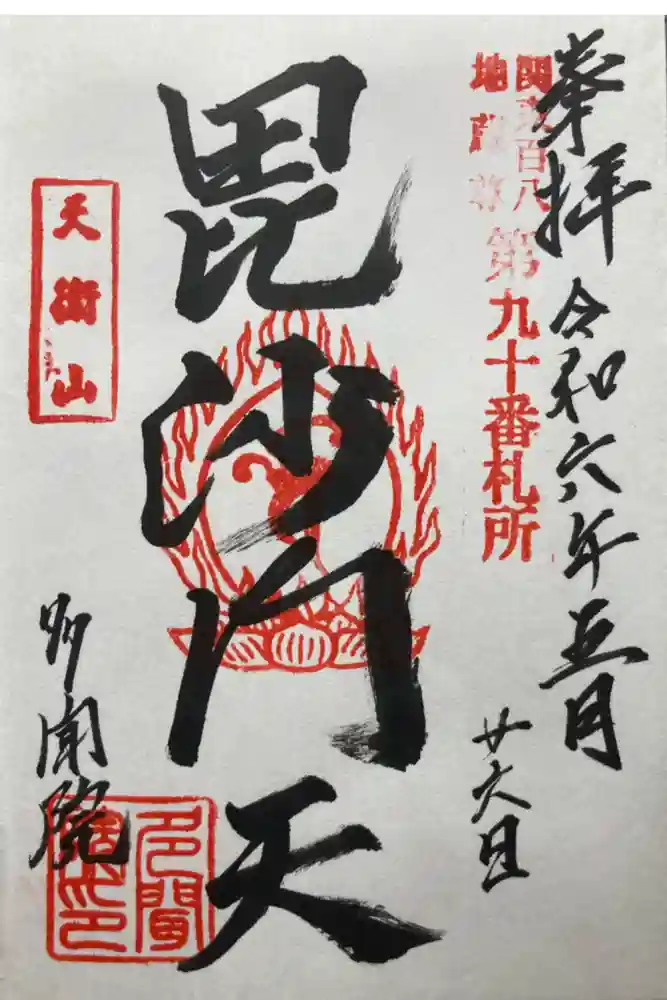 奉拝 令和六年五月
廿六日
関東百八
地蔵尊
第九十番札所
毘沙門天
天衛山
多聞院
多聞
院印